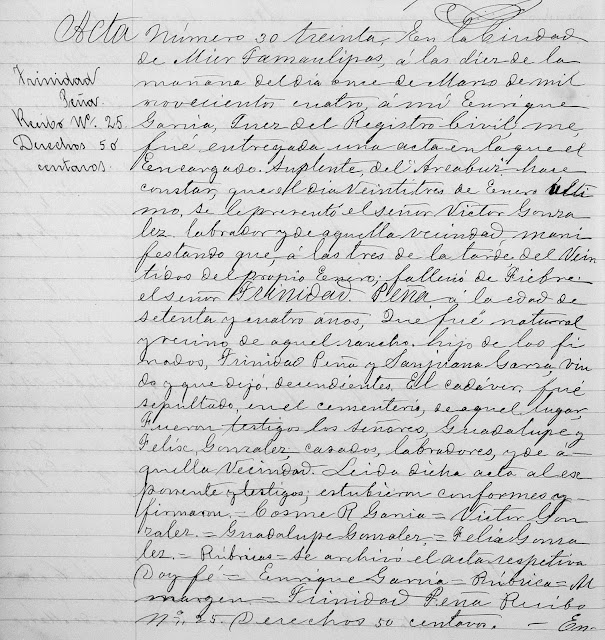 Acta número 30 treinta, En la Ciudad
de Mier Tamaulipas, á las diez de la
mañana del dia once de Marzo de mil
novecientos cuatro, á mi Enrique
Garcia, Juez del Registro Civil, me
fue entregada una acta en la que el
Encargado Suplente, del "Arcabuz" hace
constar, que el dia Veintitres de Enero ulti
mo, se le presentó el señor Victor Gonza
lez labrador y de aquella vecindad, mani
festando que, á las tres de la tarde del Vein
tidos del propio Enero; falleció de Fiebre
el señor Trinidad Peña a la edad de
setenta y cuatro años, Que fué natural
y vecino de aquel rancho. hijo de los fi
nados, Trinidad Peña y Sanjuana Garza, viu
do y que dijó decendientes. El cadáver fué
sepultado, en el cementerio, de aquel lugar,
Fueron testigos los señores, Guadalupe y
Felix, Gonzalez, casados, labradores, y de á-
quella Vecindad. Leida dicha acta al es-
ponente y testigos; estubieron conformes y
firmaron. = Cosme R Garcia = Victor Gon
zalez. = Guadalupe Gonzalez = Felix Gonza
lez. = Rúbricas = Se archivó el acta respetiva
Doy fé = Enrique Garcia = Rúbrica = Al
margen = Trinidad Peña Recibo
Nº. 25 Derechos 50 centavos. - En-
Trinidad
Peña
Recibo Nº. 25
Derechos 50
centavos.